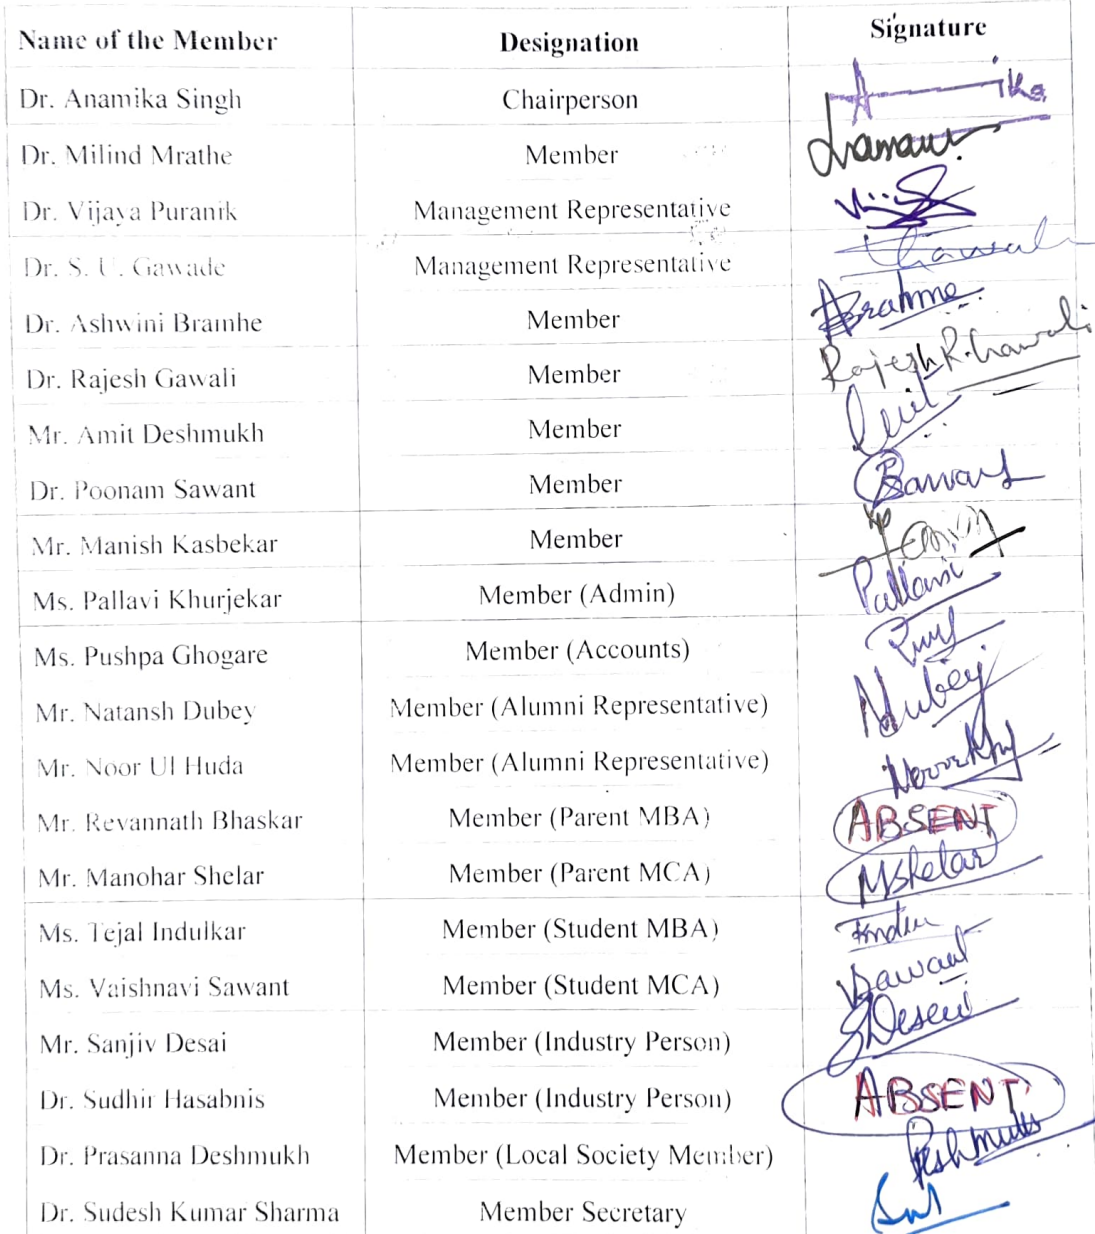 Name of the Member Designation Signature
Dr. Anamika Singh Chairperson
Dr. Milind Mrathe Member
Dr. Vijaya Puranik Management Representative
Dr. S. U. Gawade Management Representative
Dr. Ashwini Bramhe Member ABrahme
Dr. Rajesh Gawali Member Rajesh R. Gawali
Mr. Amit Deshmukh Member
Dr. Poonam Sawant Member PSawant
Mr. Manish Kasbekar Member
Ms. Pallavi Khurjekar Member (Admin) Pallavi
Ms. Pushpa Ghogare Member (Accounts)
Mr. Natansh Dubey Member (Alumni Representative) NDubey
Mr. Noor Ul Huda Member (Alumni Representative)
Mr. Revannath Bhaskar Member (Parent MBA) ABSENT
Mr. Manohar Shelar Member (Parent MCA) MShelar
Ms. Tejal Indulkar Member (Student MBA)
Ms. Vaishnavi Sawant Member (Student MCA) VSawant
Mr. Sanjiv Desai Member (Industry Person) SDesai
Dr. Sudhir Hasabnis Member (Industry Person) ABSENT
Dr. Prasanna Deshmukh Member (Local Society Member)
Dr. Sudesh Kumar Sharma Member Secretary